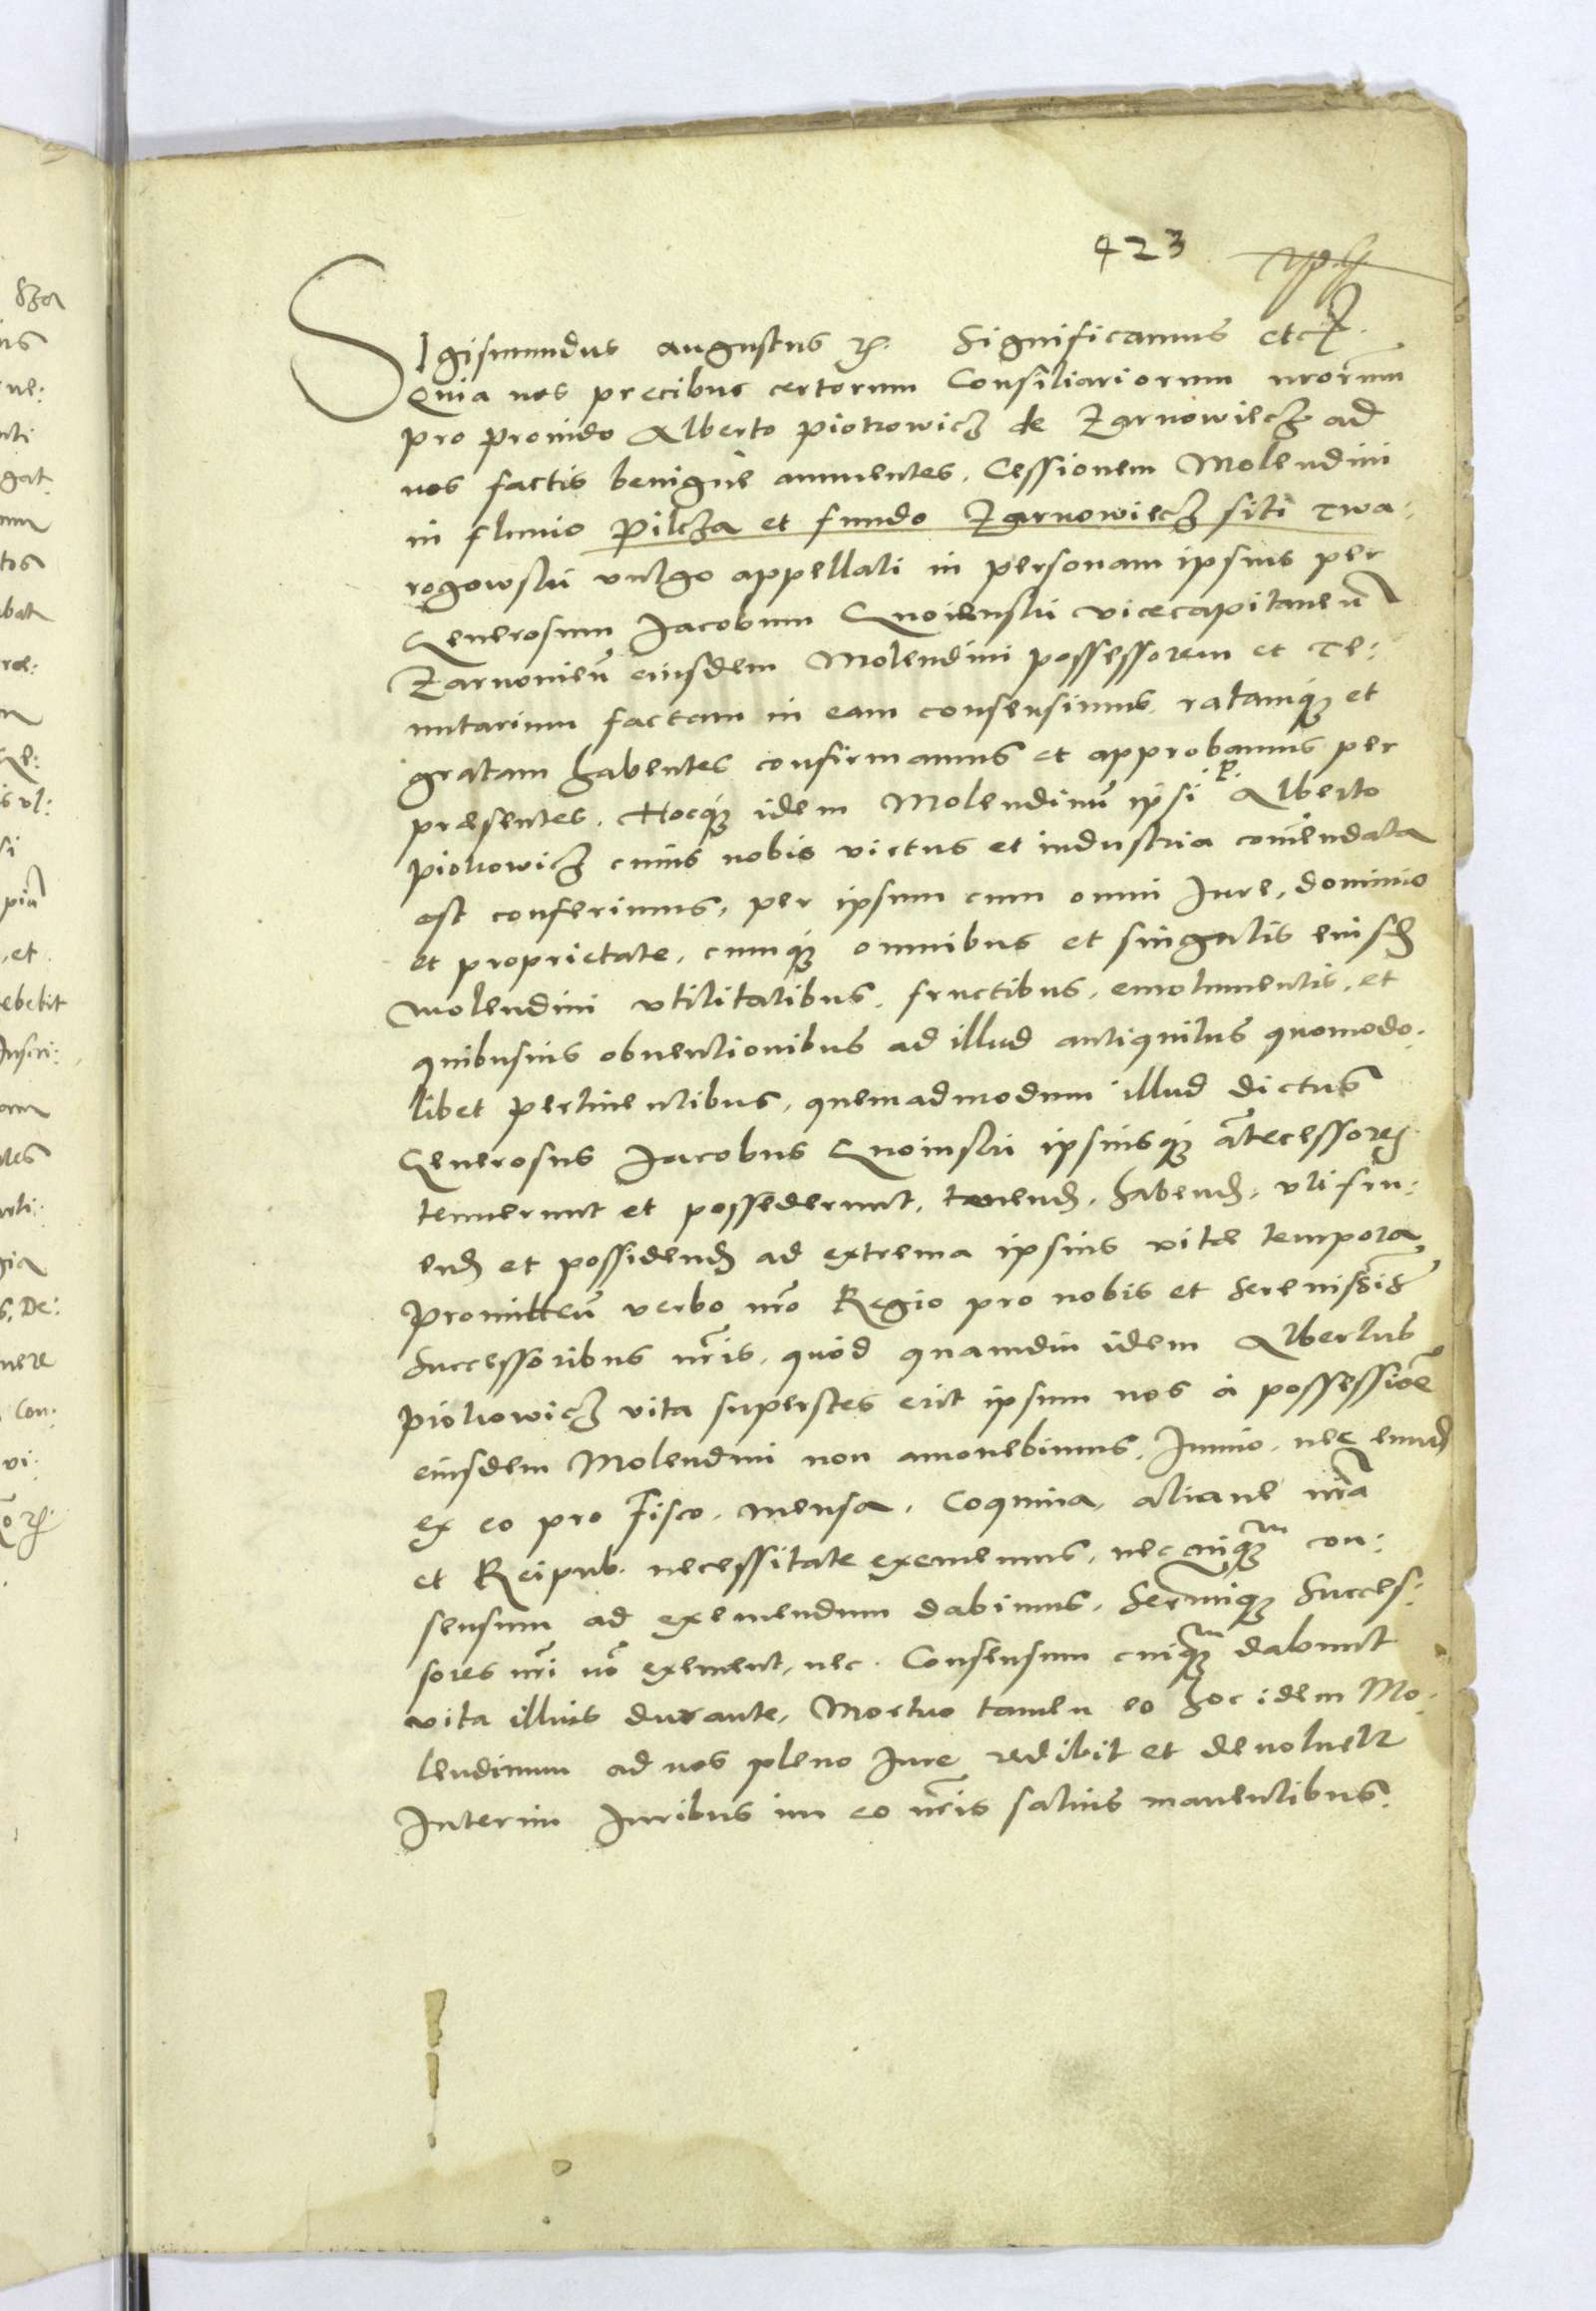 423
Sigismundus augustus etc. Significamus etc.
Quia nos precibus certorum Consiliariorum nrorum
pro provido Alberto Piotrowicz de Zarnowiecz ad
nos factis benigne annuentes, Cessionem Molendini
in fluvio Pilcza et fundo Zarnowiecz siti Twa-
rogowski vulgo appellati in personam ipsius per
Generosum Jacobum Gnoienski vicecapitaneu
Zarnovieñ eiusdem Molendini possessorem et Te:
nutarium factam in eam consensimus, ratamq et
gratam habentes confirmamus et approbamus per
præsentes. Hocq idem Molendinũ ipsi P. Alberto
Piotrowicz cuius nobis virtus et industria com̃endata
est conferimus, per ipsum cum omni Jure, dominio
et proprietate, cumq omnibus et singulis eiusd
molendini vtilitatibus, fructibus, emolumentis, et
quibusuis obuentionibus ad illud antiquitus quomodo-
libet pertinentibus, quemadmodum illud dictus
Generosus Jacobus Gnoinski ipsiusq ãtecessores
tenuerunt et possederunt, tenend, habend, vtifru:
end et possidend ad extrema ipsius vitæ tempora
Promitteñ verbo nrõ Regio pro nobis et Serenissis
Successoribus nr̃is, quòd quamdiu idem Albertus
Piotrowicz vita superstes erit ipsum nos à possessiõe
eiusdem Molendini non amouebimus, Immo, nec eund
ex eo pro Fisco, mensa, Coquina, aliaue nrã
et Reipub. necessitate exememus, nec cuiq̃m con:
sensum ad exemendum dabimus, Sermiq Succes:
sores nr̃i nõ exement, nec Consensum cuiq̃m dabunt
vita illius durante, Mortuo tamen eo hoc idem Mo-
lendinum ad nos pleno Jure redibit et devoluetr
Interim Juribus im eo nr̃is saluis manentibus.